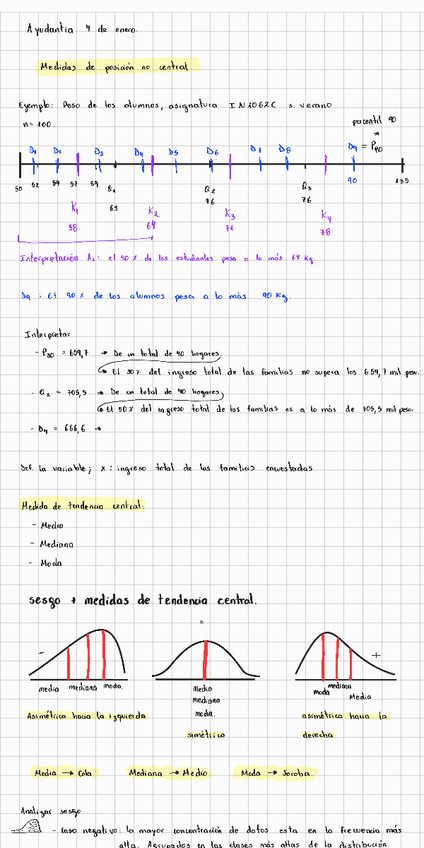 Ayudantia 4 de enero.
Medidas de posición no central
Ejemplo: Peso de los alumnos, asignatura IN1062C s. verano
n = 100.
percentil 90
D1 D2 D3 D4 D5 D6 D7 D8 D9 = P90
50 52 54 57 59 Q1 Q2 Q3 90 135
63 76 76
K1 K2 K3 K4
58 64 71 78
Interpretación K2: el 40 % de los estudiantes pesa a lo más 64 Kg
D9 : El 90 % de los alumnos pesa a lo más 90 Kg.
Interpretar
- P30 = 659,7 → De un total de 40 hogares,
El 30% del ingreso total de las familias no supera los 659,7 mil pesos.
- Q2 = 705,5 → De un total de 40 hogares,
El 50% del ingreso total de las familias es a lo más de 705,5 mil pesos.
- D4 = 666,6 →
Def. la variable; x : ingreso total de las familias encuestadas
Medida de tendencia central:
- Media
- Mediana
- Moda
sesgo + medidas de tendencia central.
- = +
media mediana moda
Media
mediana
moda.
moda mediana Media
Asimétrica hacia la izquierda
simétrico
asimétrica hacia la
derecha
Media → Cola Mediana → Medio Moda → Joroba.
Analizar sesgo
- Caso negativo: la mayor concentración de datos esta en la frecuencia más
alta. Agrupados en las clases más altas de la distribución.